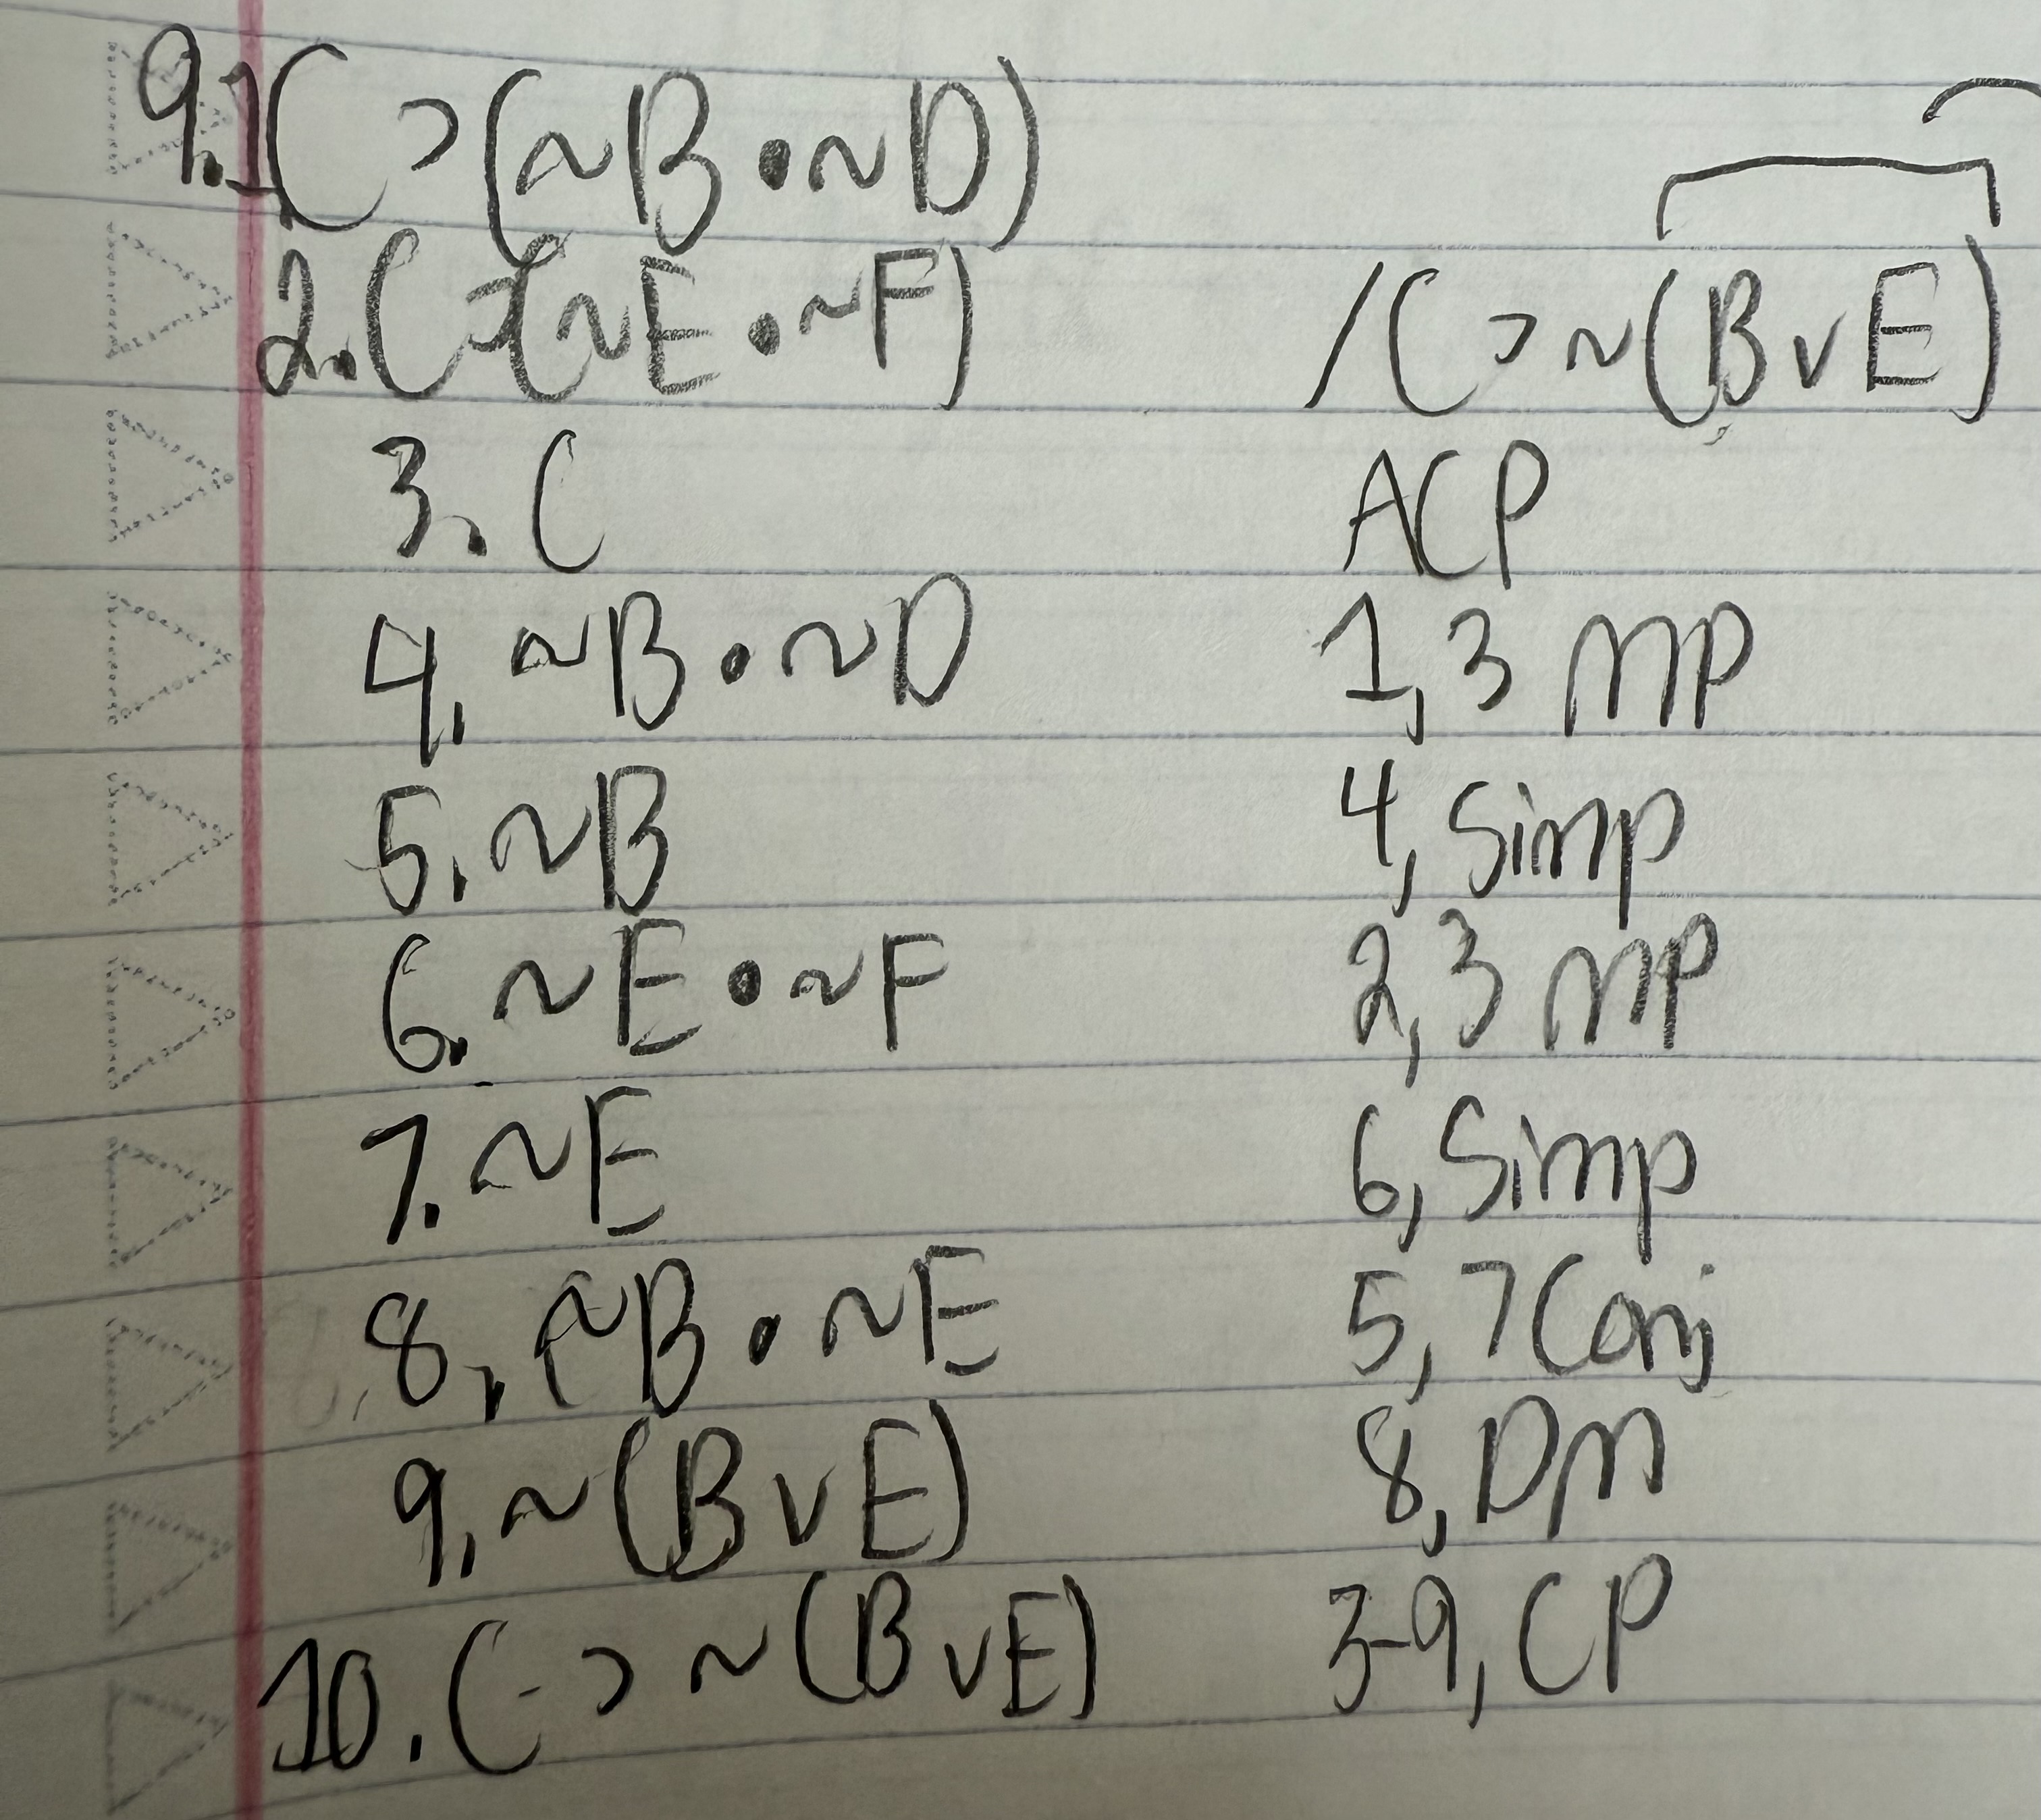 9. 1. C ⊃ (~B • ~D)
2. C ⊃ (~E • ~F) / C ⊃ ~(B v E)
3. C ACP
4. ~B • ~D 1, 3 MP
5. ~B 4, Simp
6. ~E • ~F 2, 3 MP
7. ~E 6, Simp
8. ~B • ~E 5, 7 Conj
9. ~(B v E) 8, DM
10. C ⊃ ~(B v E) 3-9, CP